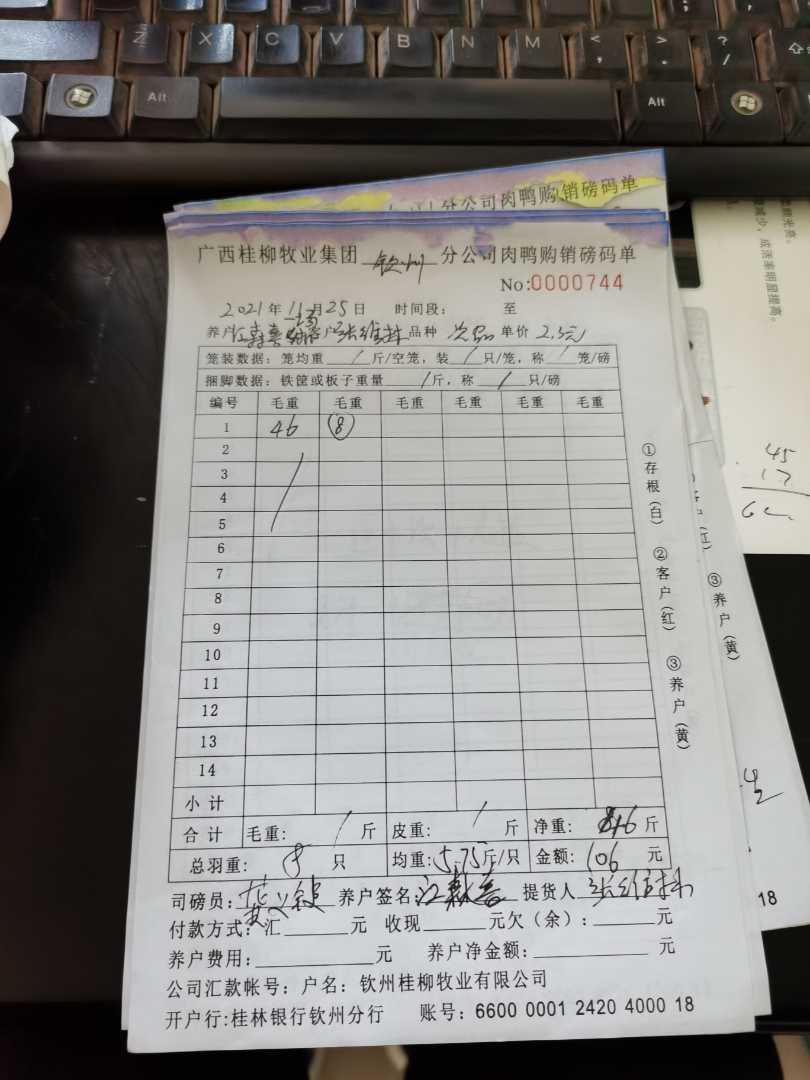 Z X C V B N M < , > . ? /
Alt Alt
分公司肉鸭购销磅码单
广西桂柳牧业集团 钦州 分公司肉鸭购销磅码单
No:0000744
2021年11月25日 时间段: 至
养户 户 张维林 品种 次品 单价 2.3元
笼装数据: 笼均重 / 斤/空笼, 装 / 只/笼, 称 / 笼/磅
捆脚数据: 铁筐或板子重量 / 斤, 称 / 只/磅
编号 毛重 毛重 毛重 毛重 毛重 毛重
1 46 8
2
3
4
5
6
7
8
9
10
11
12
13
14
小计
合计 毛重: / 斤 皮重: / 斤 净重: 46 斤
总羽重: 8 只 均重: 5.75斤/只 金额: 106 元
司磅员: 养户签名: 提货人 张维林
付款方式: 汇 元 收现 元欠(余): 元
养户费用: 元 养户净金额: 元
公司汇款帐号: 户名: 钦州桂柳牧业有限公司
开户行:桂林银行钦州分行 账号: 6600 0001 2420 4000 18
①存根(白) ②客户(红) ③养户(黄)
③养户(黄)
18
减少, 成活率明显提高。
45
17